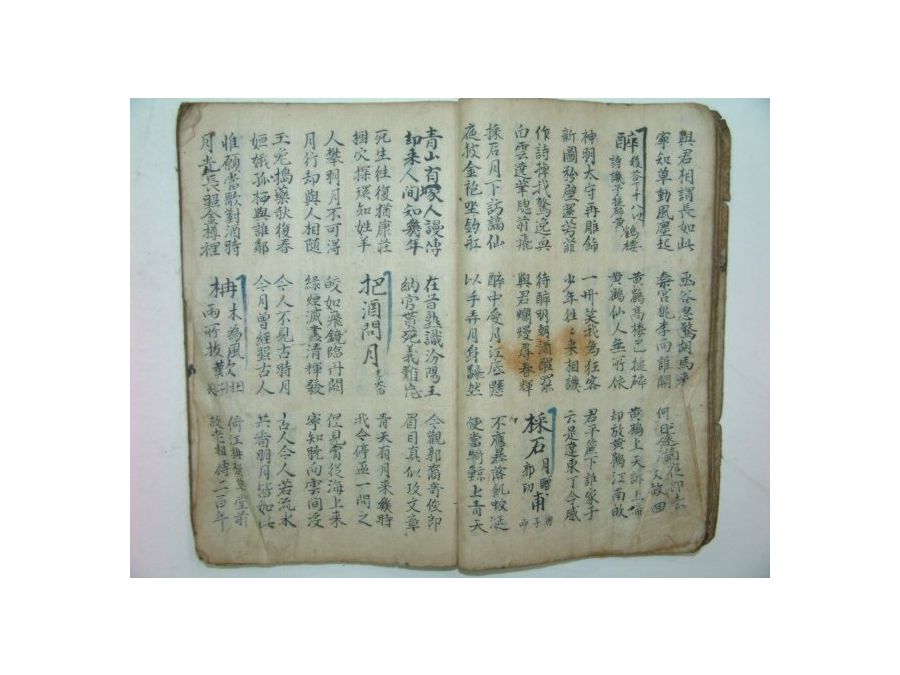 與君相謂長如此
寧知草動風塵起
函谷忽驚胡馬來
秦宮桃李向誰開
醉後答丁十八以
詩譏予搥碎黃鶴樓
黃鶴高樓已搥碎
黃鶴仙人無所依
黃鶴上天訴上帝
却放黃鶴江南歸
神明太守再雕飾
新圖粉壁還芳菲
一州笑我為狂客
少年往〻來相譏
君平簾下誰家子
云是遼東丁令威
作詩掉我驚逸興
白雲遶筆窓前飛
待醉明朝酒醒罷
與君爛熳尋春輝
採石月贈郭功甫
採石月下訪謫仙
夜披金袍坐釣舡
醉中愛月江底懸
以手弄月身飜然
不應暴落飢蛟涎
便當騎鯨上青天
青山有塚人謾傳
却來人間知幾年
在昔熟識汾陽王
納官貰死義難忘
今觀郭裔奇俊郎
眉目真似攻文章
死生往復猶康莊
穴探環知姓羊
把酒問月
青天有月來幾時
我今停盃一問之
人攀明月不可得
月行却與人相隨
皎如飛鏡臨丹闕
綠煙滅盡清輝發
但見宵從海上來
寧知曉向雲間沒
玉兎搗藥秋復春
姮娥孤栖與誰鄰
今人不見古時月
今月曾經照古人
古人今人若流水
共看明月皆如此
惟願當歌對酒時
月光長照金樽裡
枏木為風
雨所拔歎
倚江枏樹草堂前
故老相傳二百年